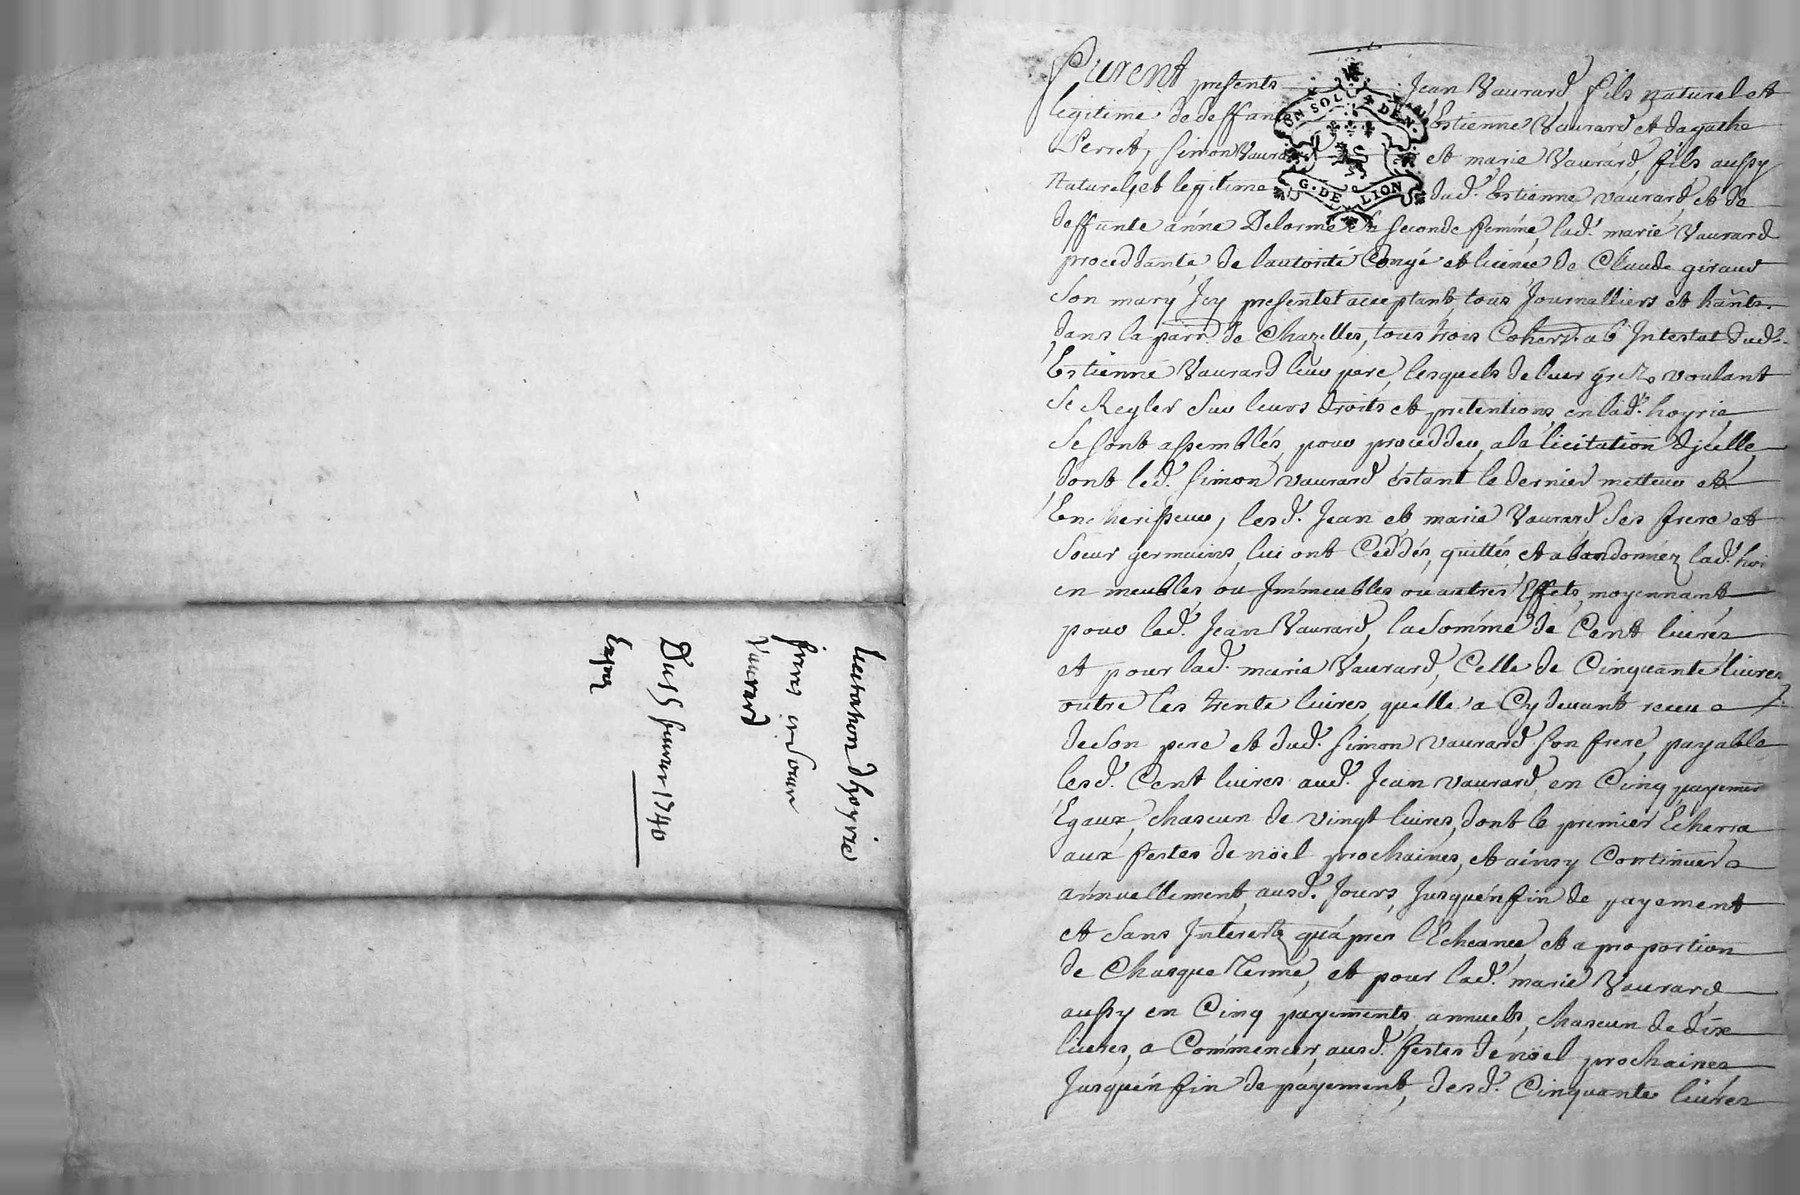 Licitation dhoyrie
frères et sœur
Vaurard
Du 5 fevrier 1740
Expon
Furent presents Jean Vaurard, fils naturel et
legitime de deffunt Estienne Vaurard et dagathe
Perret, Simon Vaurard et marie Vaurard, fils aussy
Naturels et legitimes dud. Estienne Vaurard, et de
deffunte anne Delorme sa seconde femme, lad. marie Vaurard
proceddante de lautorité Congé et licence de Claude giraud
Son mary Jcy present et acceptant, tous Journalliers et hants.
dans la parr. de Chazelles, tous trois Coherrs. ab Intestat dud.
Estienne Vaurard leur pere, lesquels de leur gré voulant
Se Regler Sur leurs droits et pretentions en lad. hoyrie
Se sont assemblés, pour procedder, a la licitation djcelle,
dont led. Simon Vaurard estant le dernier metteur et
Encherisseur, lesd. Jean et marie Vaurard Ses frere et
Soeur germains, lui ont Ceddés, quittés, et abandonnez lad. hoi
en meubles ou Jmmeubles ou autres Effets, moyennant
pour led. Jean Vaurard, la Somme de Cent livres
et pour lad. marie Vaurard, Celle de Cinquante livres
outre les trente livres, quelle a Cy devant receue
de Son pere et dud. Simon Vaurard Son frere, payable
lesd. Cent livres aud. Jean Vaurard, en Cinq payemens
Egaux, chascun de vingt livres, dont le premier Echerra
aux festes de noël prochaines, et ainsy Continuera
annuellement, ausd. Jours, Jusquen fin de payement
et Sans Interests qu'apres l'Echeance, et a proportion
de Chasque Terme, et pour lad. marie Vaurard,
aussy en Cinq payements, annuels, chascun de dix
livres, a Commencer, ausd. festes de noël prochaines
Jusquén fin de payement, desd. Cinquante livres
ON SOL 4 DEN.
G. DE LION